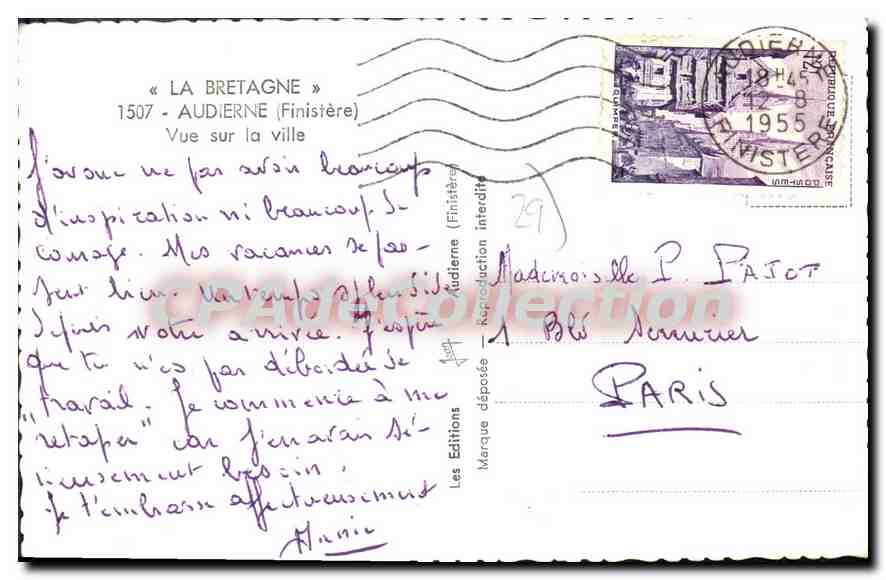 « LA BRETAGNE »
1507 - AUDIERNE (Finistère)
Vue sur la ville
J'avoue ne pas avoir beaucoup
d'inspiration ni beaucoup de
courage. Mes vacances se pas-
sent bien. Un temps splendide
depuis notre arrivée. J'espère
que tu n'es pas débordée de
travail. Je commence à me
"retaper" car j'en avais sé-
rieusement besoin.
Je t'embrasse affectueusement
Annie
Les Editions Audierne (Finistère)
Marque déposée — Reproduction interdite
29
AUDIERNE
18H45
12-8
1955
FINISTERE
REPUBLIQUE FRANÇAISE
POSTES
12F
QUIMPER
Mademoiselle P. PAJOT
1 Bld Serrurier
PARIS
CPA de Collection